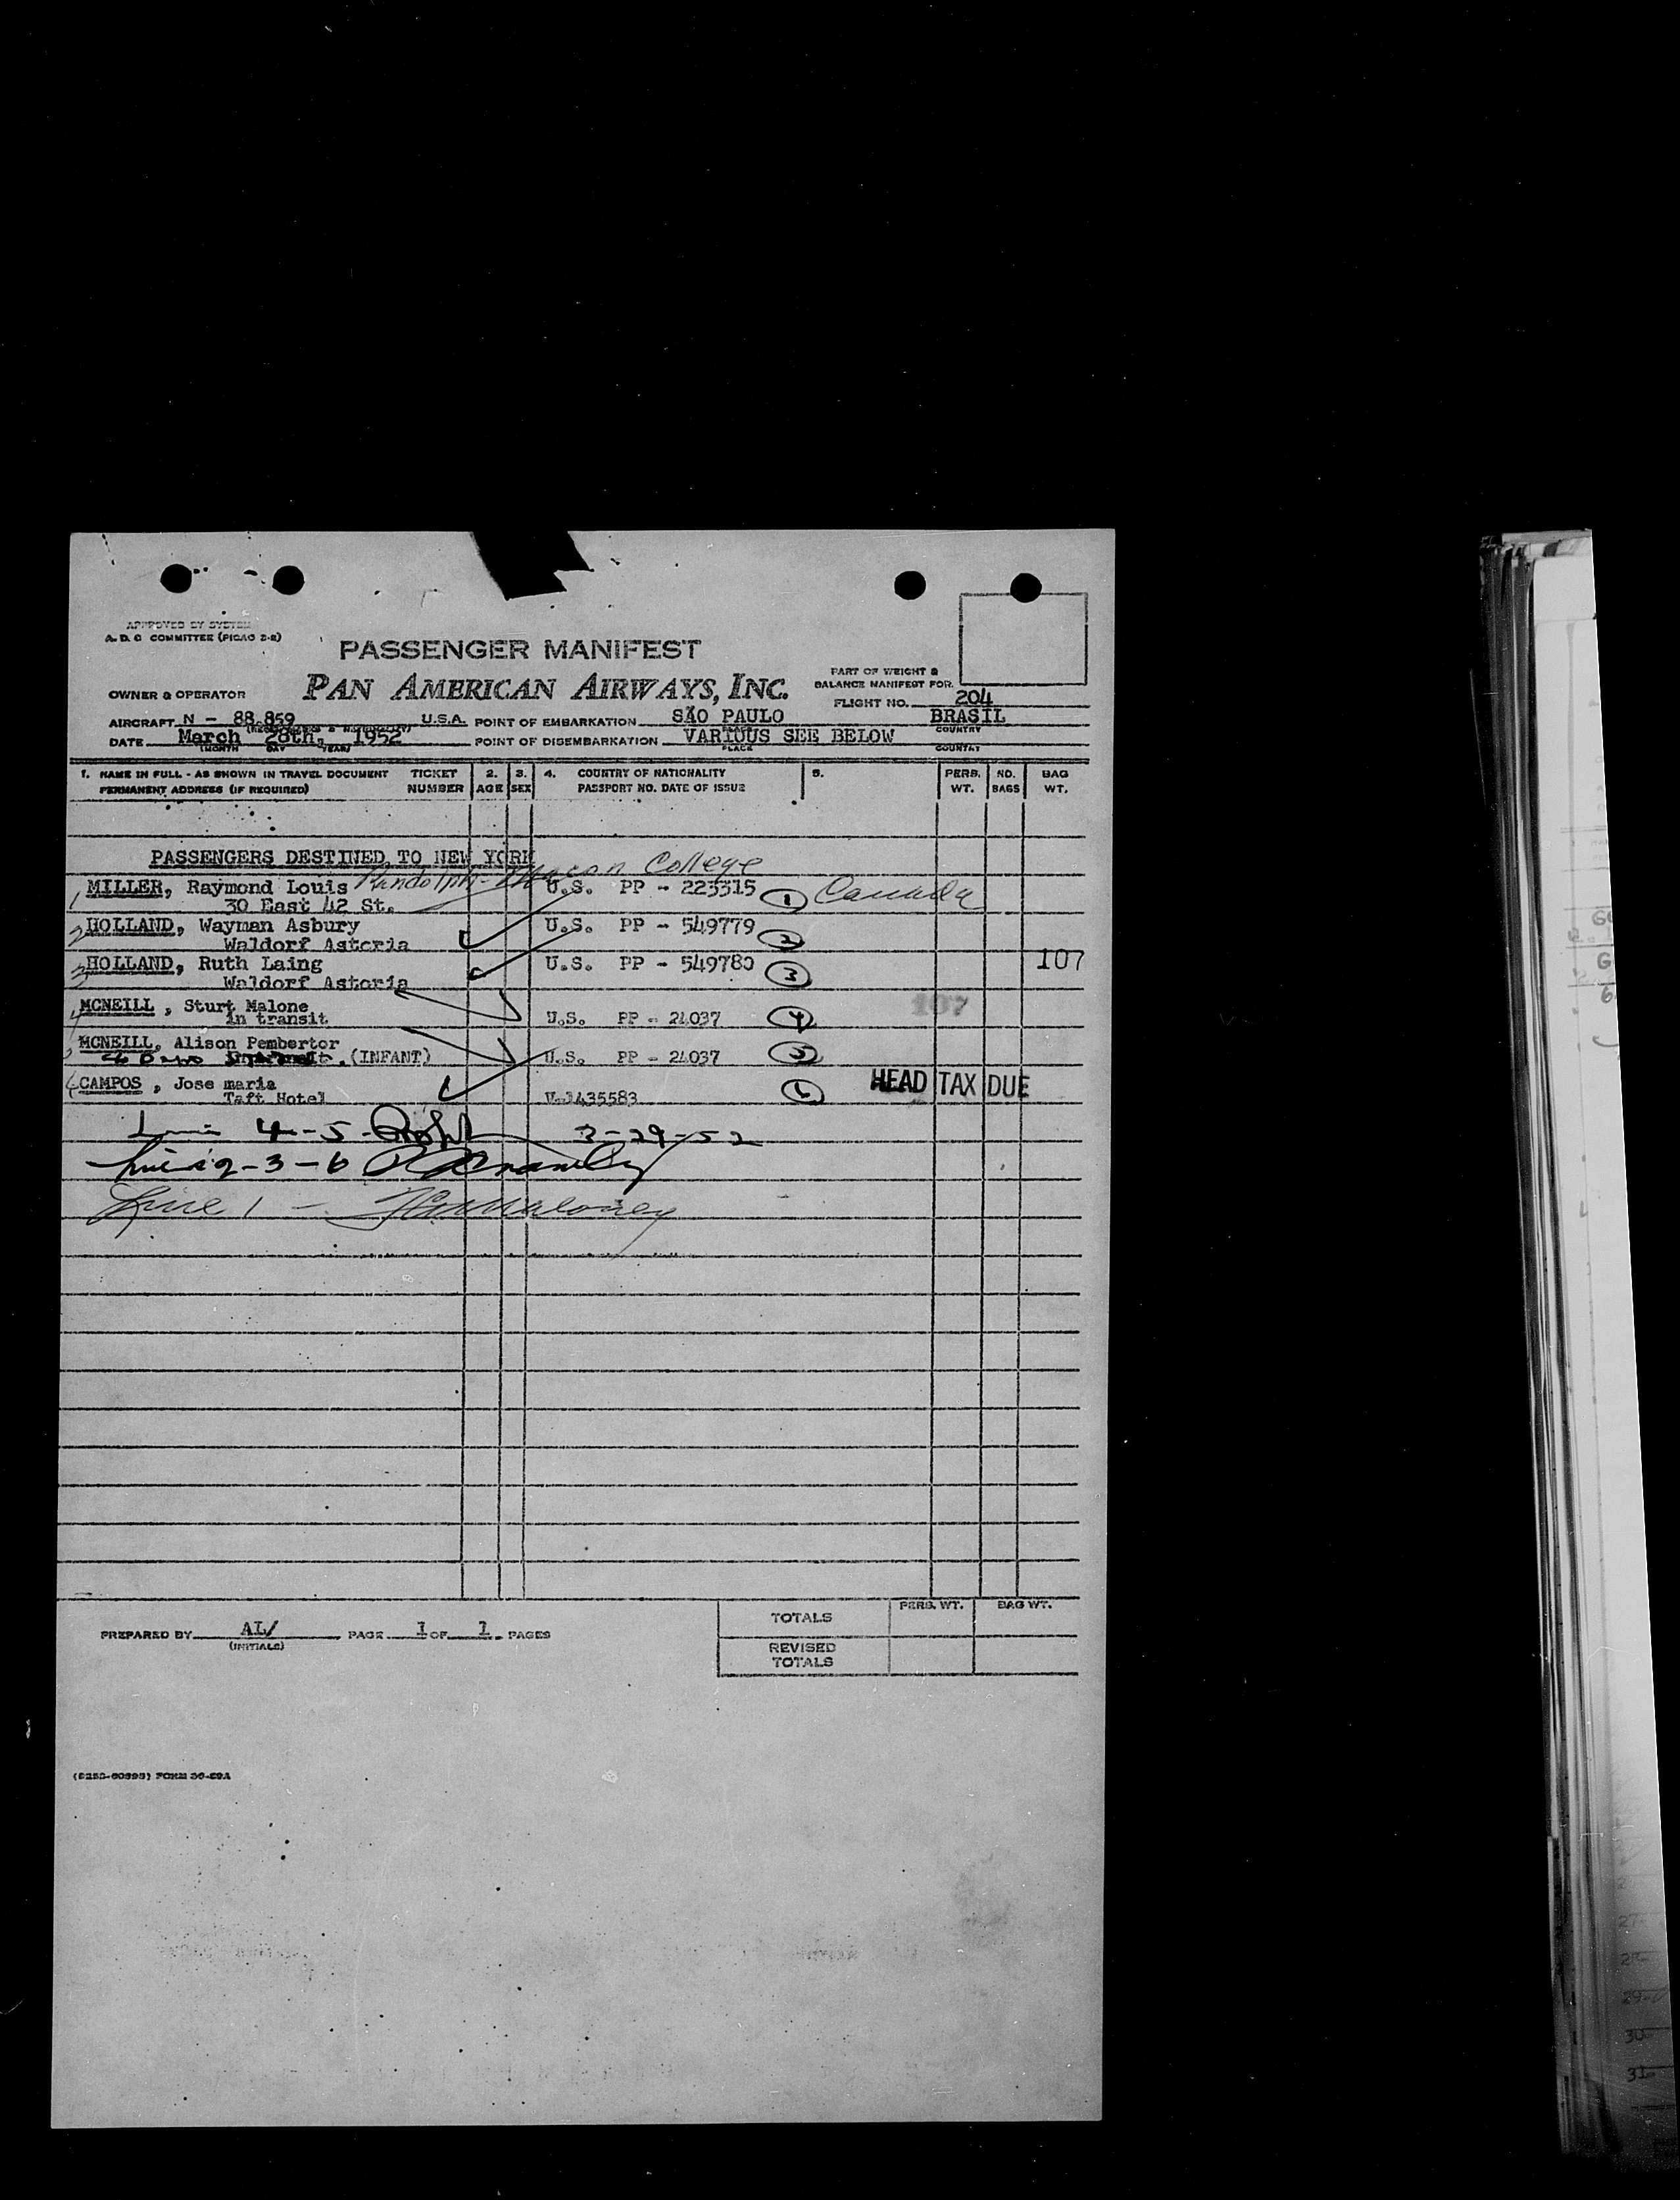 APPROVED BY SYSTEM
A. D. C COMMITTEE (PICAO 2-R)
PASSENGER MANIFEST
PART OF WEIGHT &
BALANCE MANIFEST FOR
OWNER & OPERATOR PAN AMERICAN AIRWAYS, INC.
FLIGHT NO. 204
AIRCRAFT N - 88 859 U.S.A. POINT OF EMBARKATION SÃO PAULO BRASIL
COUNTRY
DATE March 28th, 1952 POINT OF DISEMBARKATION VARIOUS SEE BELOW
(MONTH DAY YEAR) PLACE COUNTRY
1. NAME IN FULL - AS SHOWN IN TRAVEL DOCUMENT TICKET 2. 3. 4. COUNTRY OF NATIONALITY 5. PERS. NO. BAG
PERMANENT ADDRESS (IF REQUIRED) NUMBER AGE SEX PASSPORT NO. DATE OF ISSUE WT. BAGS WT.
PASSENGERS DESTINED TO NEW YORK
Randolph-Macon College
1 MILLER, Raymond Louis U.S. PP - 223315 1 Canada
30 East 42 St.
2 HOLLAND, Wayman Asbury U.S. PP - 549779 2
Waldorf Astoria
3 HOLLAND, Ruth Laing U.S. PP - 549780 3 107
Waldorf Astoria
4 MCNEILL , Sturt Malone 107
in transit U.S. PP - 24037 4
MCNEILL, Alison Pembertor
(INFANT) U.S. PP - 24037 5
6 CAMPOS , Jose maria 6 HEAD TAX DUE
Taft Hotel V-1435583
4-5- 3-29-52
2-3-6
Line 1 - Maloney
PREPARED BY AL/ PAGE 1 OF 1 PAGES
(INITIALS)
PERS. WT. BAG WT.
TOTALS
REVISED
TOTALS
27
29
30
31